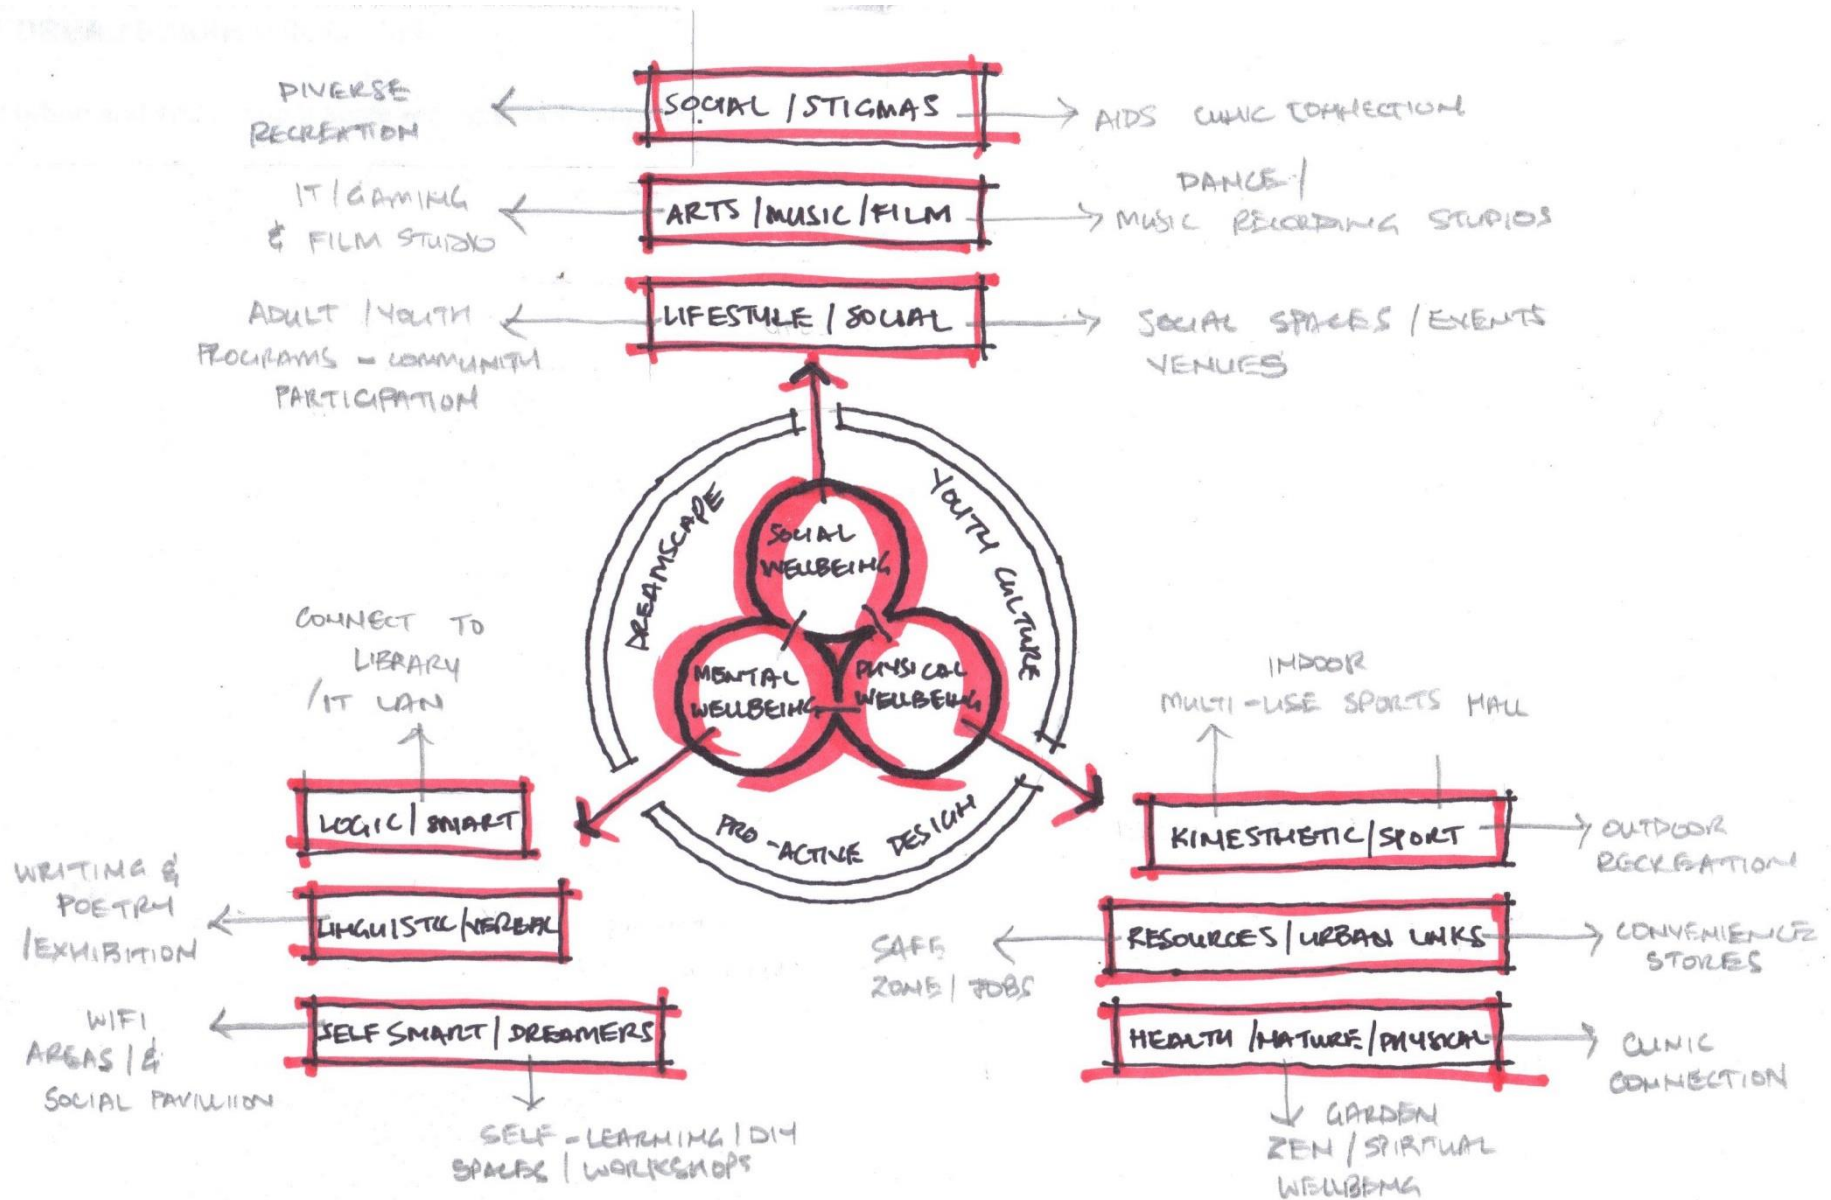 DIVERSE
RECREATION
SOCIAL / STIGMAS
AIDS CLINIC CONNECTION
IT / GAMING
& FILM STUDIO
ARTS / MUSIC / FILM
DANCE /
MUSIC RECORDING STUDIOS
ADULT / YOUTH
PROGRAMS - COMMUNITY
PARTICIPATION
LIFESTYLE / SOCIAL
SOCIAL SPACES / EVENTS
VENUES
DREAMSCAPE
YOUTH CULTURE
PRO-ACTIVE DESIGN
SOCIAL
WELLBEING
MENTAL
WELLBEING
PHYSICAL
WELLBEING
CONNECT TO
LIBRARY
/ IT LAN
LOGIC / SMART
WRITING &
POETRY
/ EXHIBITION
LINGUISTIC / VERBAL
WIFI
AREAS / &
SOCIAL PAVILLIION
SELF SMART / DREAMERS
SELF - LEARNING / DIY
SPACES / WORKSHOPS
INDOOR
MULTI - USE SPORTS HALL
KINESTHETIC / SPORT
OUTDOOR
RECREATION
SAFE
ZONE / JOBS
RESOURCES / URBAN LINKS
CONVENIENCE
STORES
HEALTH / NATURE / PHYSICAL
CLINIC
CONNECTION
GARDEN
ZEN / SPIRTUAL
WELLBEING